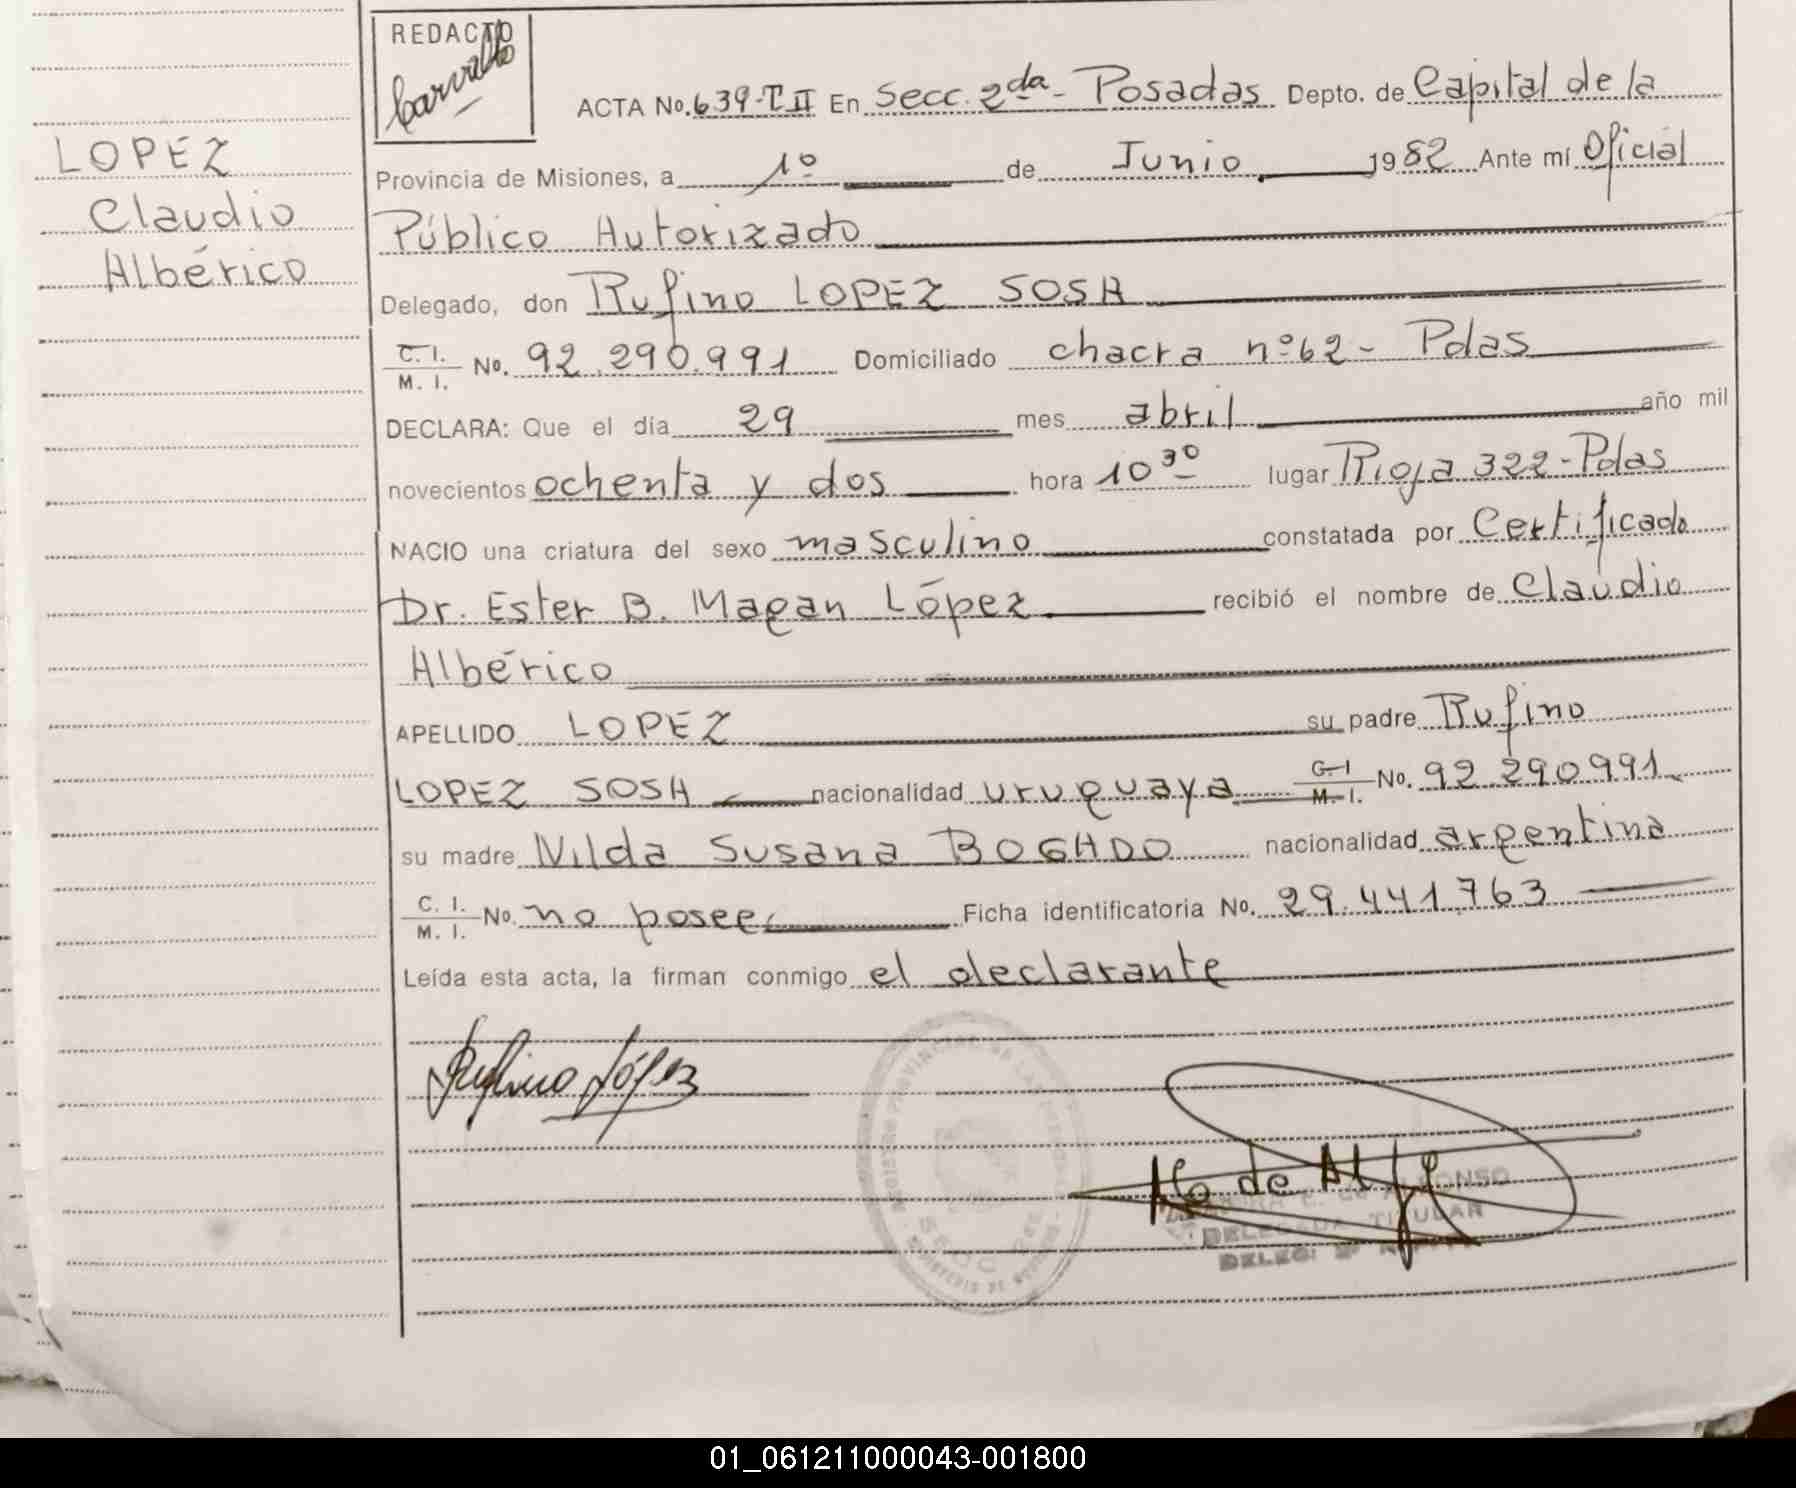 REDACTO
Carvallo
ACTA No. 639-T.II En Secc. 2da- Posadas Depto. de Capital de la
LOPEZ
Claudio
Albérico
Provincia de Misiones, a 1º de Junio 1982 Ante mí Oficial
Público Autorizado
Delegado, don Rufino LOPEZ SOSA
C. I. / M. I. No. 92.290.991 Domiciliado chacra nº62- Pdas
DECLARA: Que el día 29 mes abril año mil
novecientos ochenta y dos hora 10 30 lugar Rioja 322-Pdas
NACIO una criatura del sexo masculino constatada por Certificado
Dr. Ester B. Magan López recibió el nombre de Claudio
Albérico
APELLIDO LOPEZ su padre Rufino
LOPEZ SOSA nacionalidad uruguaya C. I. / M. I. No. 92.290991
su madre Nilda Susana BOGADO nacionalidad argentina
C. I. / M. I. No. no posee Ficha identificatoria No. 29.441.763
Leída esta acta, la firman conmigo el declarante
Rufino López
DELEGADA TITULAR
01_061211000043-001800